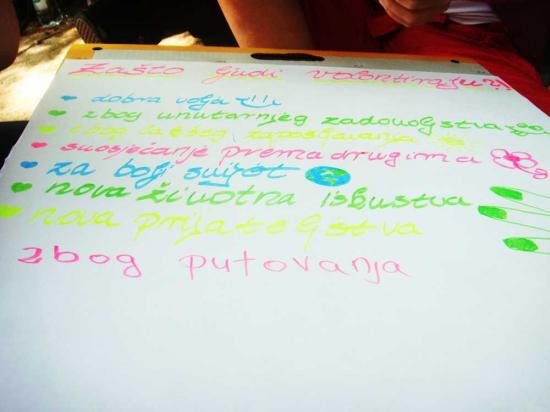 Zašto ljudi volontiraju?!
dobra volja
zbog unutarnjeg zadovoljstva
zbog lakšeg zapošljavanja
suosjećanje prema drugima
za bolji svijet
nova životna iskustva
nova prijateljstva
zbog putovanja